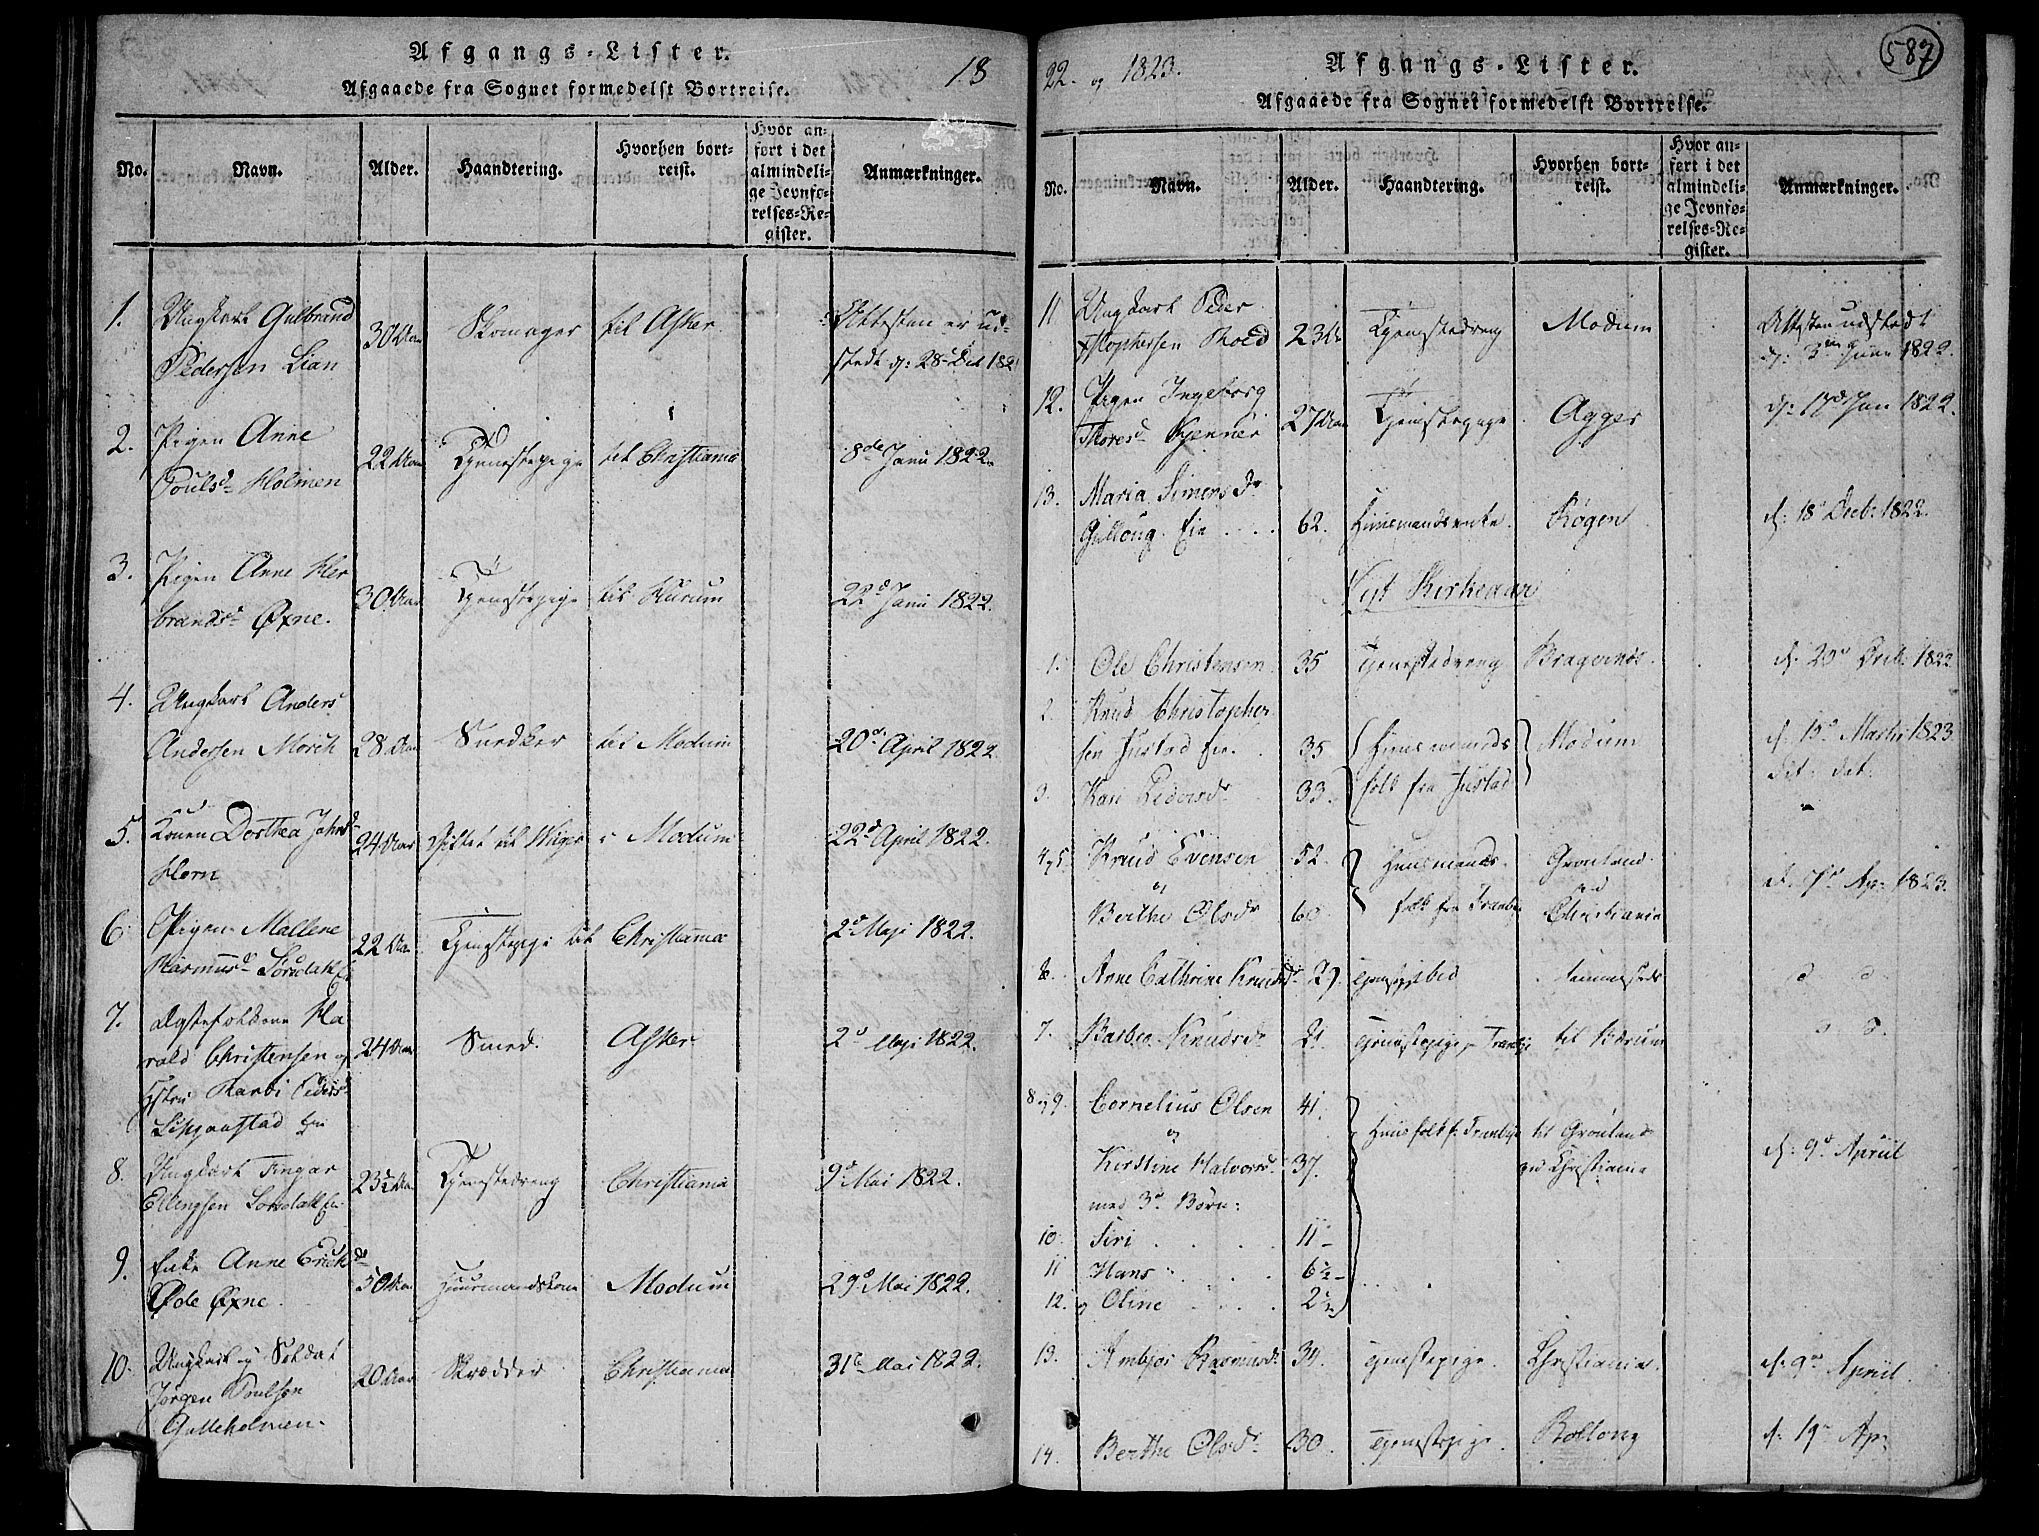 Afgangs-Lister.
Afgaaede fra Sognet formedelst Bortreise.
18
No.
Navn.
Alder.
Haandtering.
Hvorhen bort-
reist.
Hvor an-
ført i det
almindeli-
ge Jevnfø-
relses-Re-
gister.
Anmærkninger.
1. Ungkarl Gulbrand
Pedersen Lian
30 Aar
Skomager
til Asker.
Attesten er ud-
stedt d: 28 Det 182
2. Pigen Anne
Poulsd. Holmen
22 Aar
Tjenestepige
til Christiania
8de Janu 1822.
3. Pigen Anne Her
brandsd. Øxne.
30 Aar
Tjenestepige
til Hurum
22d Janu 1822.
4. Ungkarl Anders
Andersen Morch
28 Aar
Snedker
til Modum
20d April 1822
5. Konen Dorthea Johnsd.
Horn
24 Aar
Giftet til Wiger
i Modum
22d April 1822.
6. Pigen Mallene
Rasmusd. Sørsdahl E
22 Aar
Tjenestepige
til Christiania
2d Maji 1822.
7. Ægtefolkene Ha
rald Christensen og
Hstru Randi Peders
Eie
24 Aar
Smed.
Asker
2d Maji 1822.
8. Ungkarl Tingar
Ellingsen Sørsdahl Ei
23 1/2 Aar
Tjenestedreng
Christiania
9d Mai 1822.
9. Enke Anne Erichsdr
Øde Øxne.
50 Aar
Huusmandskone
Modum
29d Mai 1822.
10. Ungkarl og Soldat
Jørgen Poulsen
Gulleholmen.
20 Aar
Skrædder
Christiania
31te Mai 1822.
22. og 1823.
Afgangs-Lister.
587
Afgaaede fra Sognet formedelst Bortreise.
No.
Navn.
Alder.
Haandtering.
Hvorhen bort-
reist.
Hvor an-
ført i det
almindeli-
ge Jevnfø-
relses-Re-
gister.
Anmærkninger.
11 Ungkarl Peder
Xstophersen Roed
23 Ar
Tjenestedreng
Modum
Attesten udstedt
d: 3die Juni 1822.
12. Pigen Ingeborg
Thoresd. Kjenner
27 Aar
Tjenestepige
Agger
d: 17d Jun 1822.
13. Maria Simensdr
Gullaug Eie
62.
Huusmandsenke.
Røgen
d: 18d Decb: 1822.
Nyt Kirkeaar
1. Ole Christensen
35
Tjenestedreng
Bragernæs.
d. 20d Decb. 1822
2. Knud Christopher
sen Justad Eie.
35
Huusmands
Modum
d. 13d Marti: 1823.
3. Kari Pedersdr
33.
folk fra Justad
dit: dit:
4 og 5. Knud Evensen
52.
Huusmands
Grønland
og
Berthe Olsdr
60
folk fra Tranby
ved
Christiania
d. 7d Ap: 1823.
6. Anne Cathrine Knudsdr
29.
d d
7. Barbro Knudsdr
21
Tjenestepige, Tranbye
til Bærum
d d
8 og 9. Cornelius Olsen
41.
og
Kirstine Halvorsd.
37.
Huusfolk f. Tranbye
til Grønland
ved Christiania
d. 9d Apriil
med 3de Børn:
10. Siri
11
11 Hans
6 1/2
12. og Oline
2 1/2
13. Ambjør Rasmusd.
34.
Tjenestepige.
Christiania.
d. 9de Apriil.
14. Berthe Olsdr
30.
Tjenestepige.
d. 19d Ap: